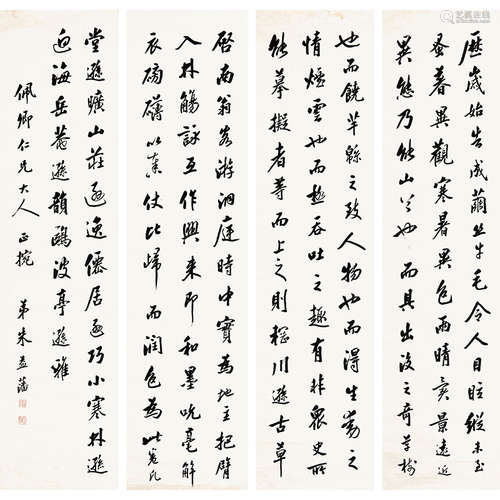 歷歲始告成繭丝牛毛令人目眩縱未至
蚤暮異觀寒暑異色雨晴異景遠近
異態乃能山於也而具出沒之奇草樹
也而饒芊緜之致人物也而得生動之
情煙雲也而極吞吐之趣有非襄史所
能摹擬者等而上之則輞川遜古草
啓南翁客游洞庭時中實為地主把臂
入林觴詠互作興來即和墨吮毫解
衣磅礴以奉仗比歸而潤色為此卷凡
堂遜曠山莊遜逸僊居遜巧小寒林遜
迫海岳菴遜韻鷗波亭遜雅
佩卿仁兄大人正捥
弟朱益藩